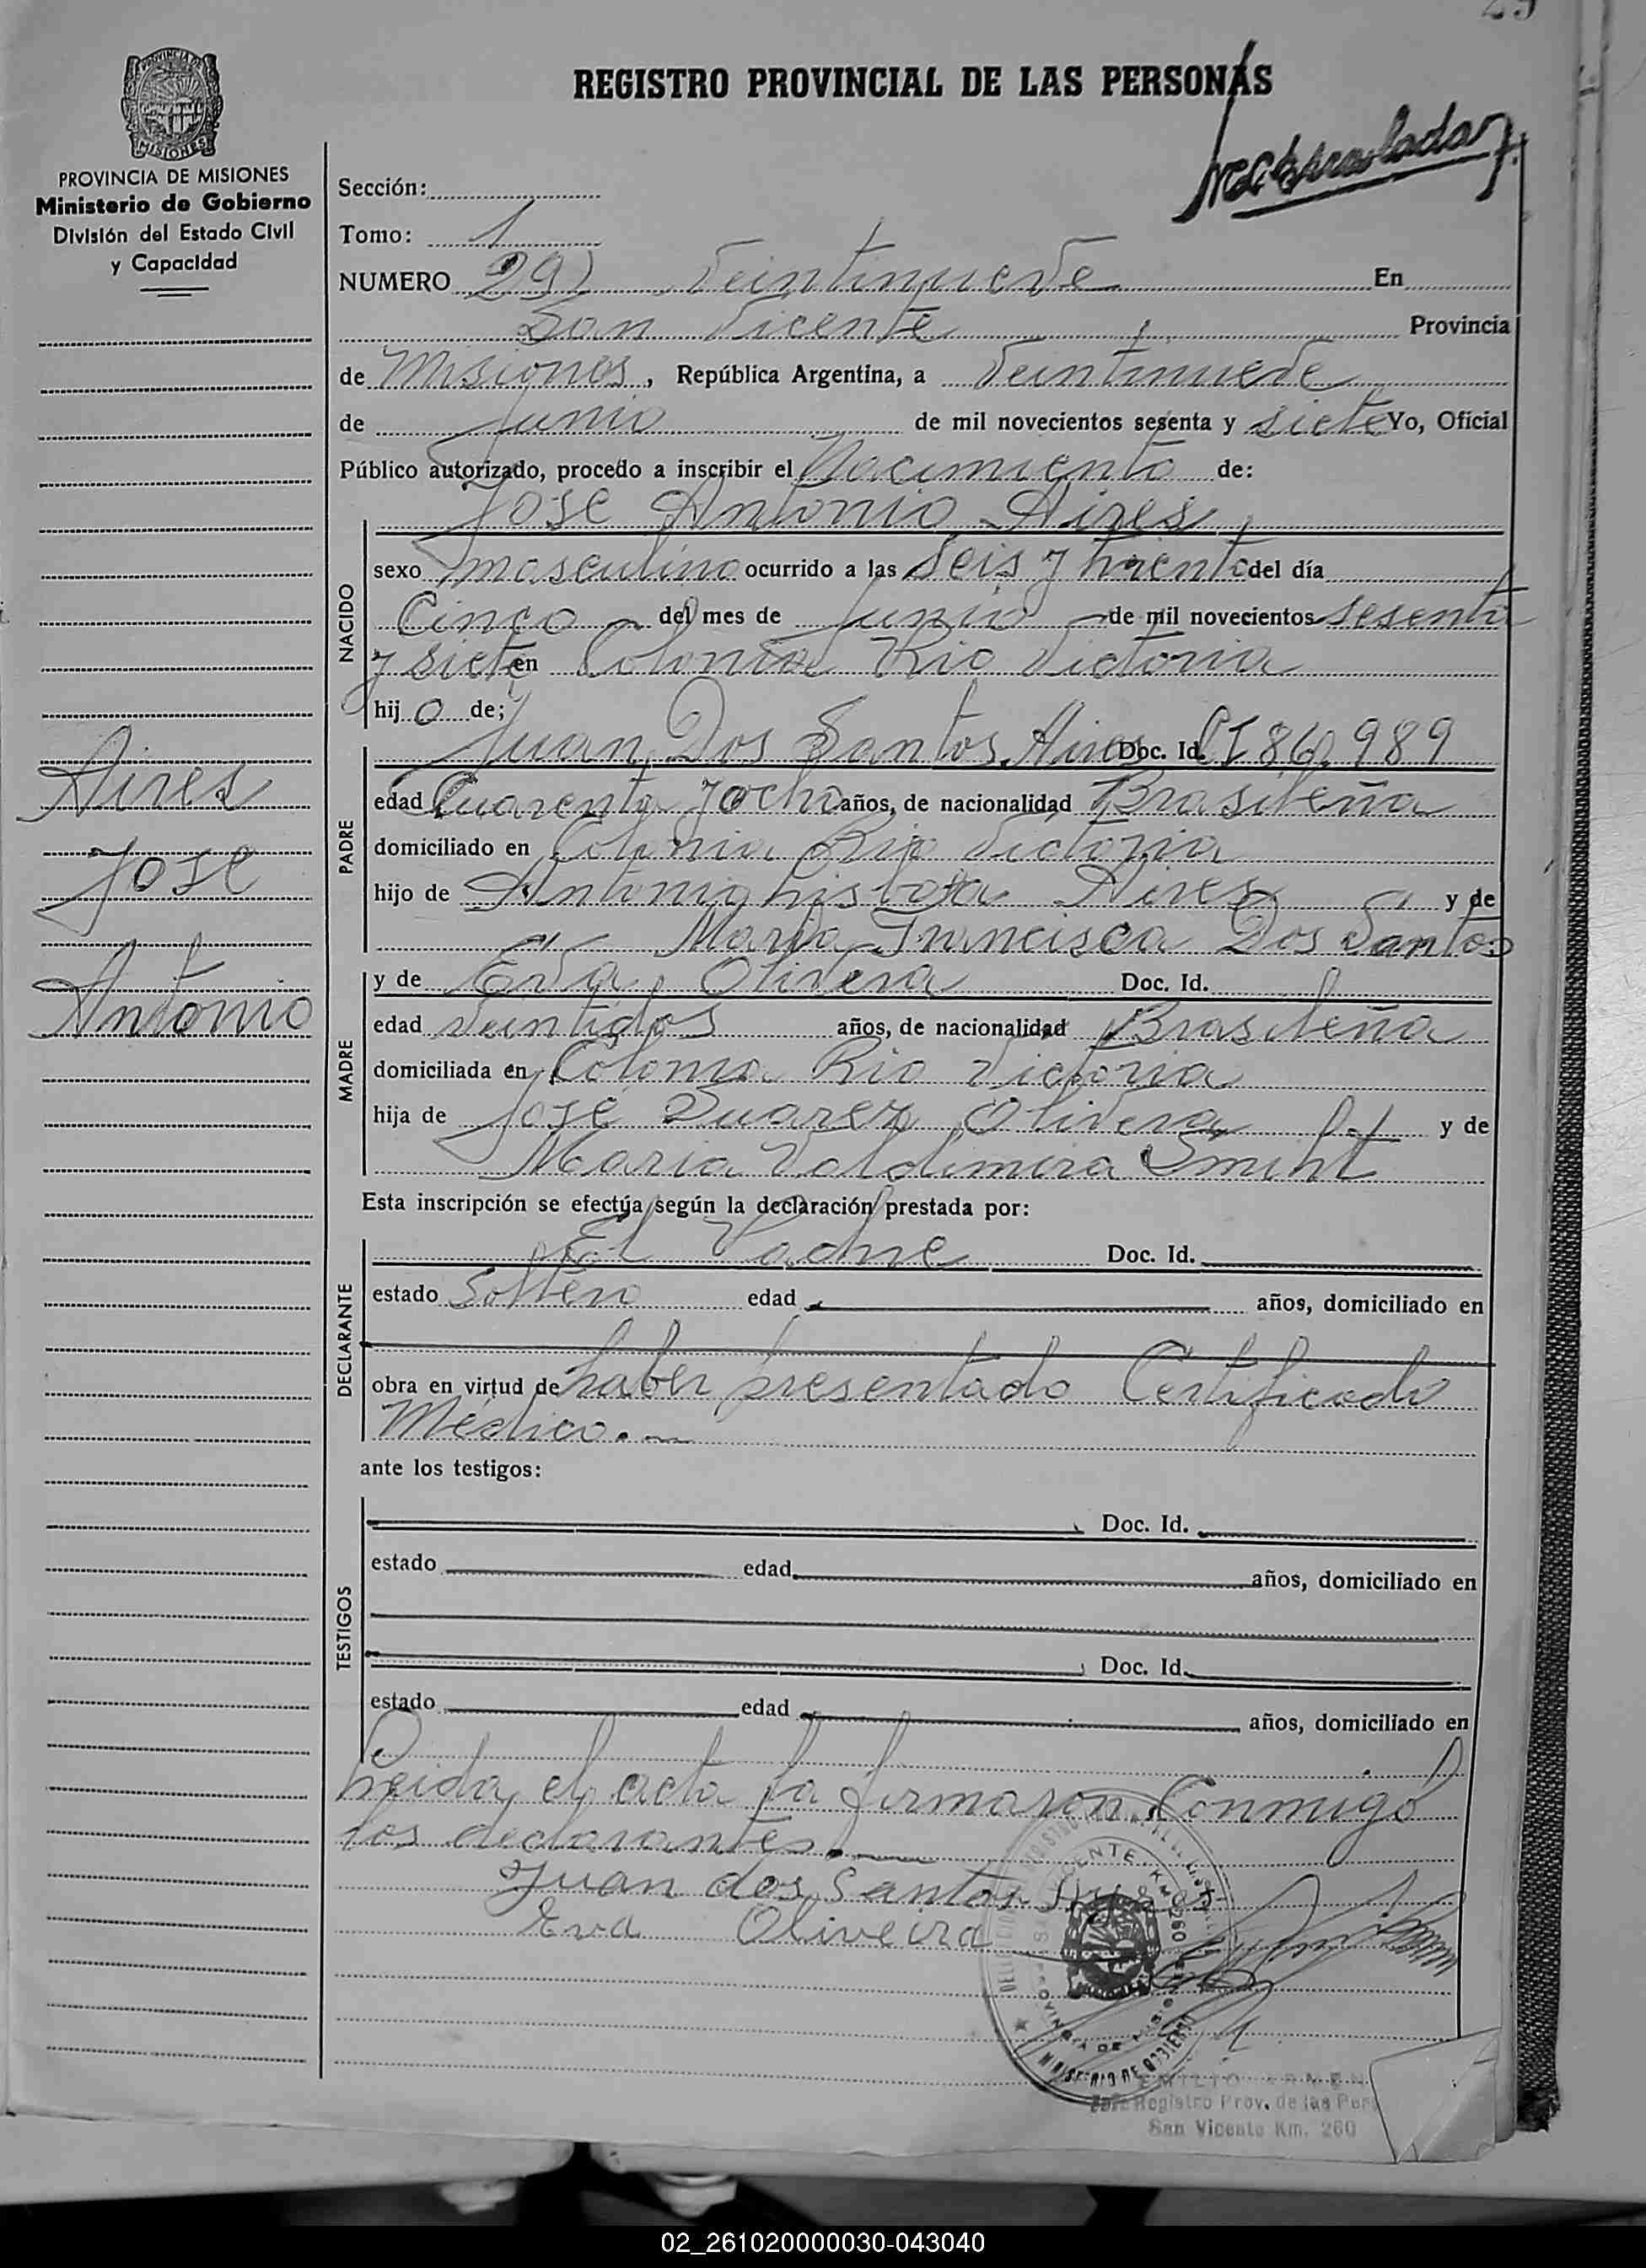 29
REGISTRO PROVINCIAL DE LAS PERSONAS
PROVINCIA DE MISIONES
Ministerio de Gobierno
División del Estado Civil
y Capacidad
Sección:
Tomo: 1
NUMERO 29) Veintinueve En
San Vicente Provincia
de Misiones, República Argentina, a Veintinueve
de Junio de mil novecientos sesenta y siete Yo, Oficial
Público autorizado, procedo a inscribir el Nacimiento de:
Jose Antonio Aires
NACIDO
sexo masculino ocurrido a las Seis y treinta del día
Cinco del mes de Junio de mil novecientos sesenta
y siete en Colonia Rio Victoria
hijo de;
PADRE
Juan Dos Santos Aires Doc. Id. CI 860,989
edad Cuarenta y ocho años, de nacionalidad Brasileña
domiciliado en Colonia Rio Victoria
hijo de Antonio Aires y de
Maria Francisca Dos Santos
MADRE
y de Eva Olivera Doc. Id.
edad Veintidos años, de nacionalidad Brasileña
domiciliada en Colonia Rio Victoria
hija de José Suarez Olivera y de
Maria Valdimira Smiht
Esta inscripción se efectúa según la declaración prestada por:
DECLARANTE
El Padre Doc. Id.
estado Soltero edad años, domiciliado en
obra en virtud de haber presentado Certificado
Médico.
ante los testigos:
TESTIGOS
Doc. Id.
estado edad años, domiciliado en
Doc. Id.
estado edad años, domiciliado en
Leida el acta la firmaron Conmigo
los declarantes.
Juan dos Santos
Eva Oliveira
Aires
Jose
Antonio
MINISTERIO DE GOBIERNO
PROVINCIA DE MISIONES
Jefe Registro Prov. de las Per
San Vicente Km. 260
02_261020000030-043040